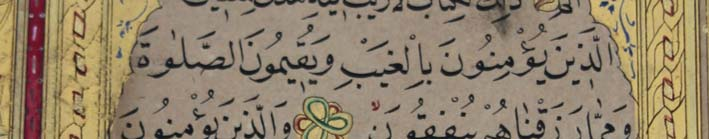 الم ذلك الكتاب لا ريب فيه هدى للمتقين
الَّذِينَ يُؤْمِنُونَ بِالْغَيْبِ وَيُقِيمُونَ الصَّلٰوةَ
وَمِمَّا رَزَقْنَاهُمْ يُنْفِقُونَ وَالَّذِينَ يُؤْمِنُونَ